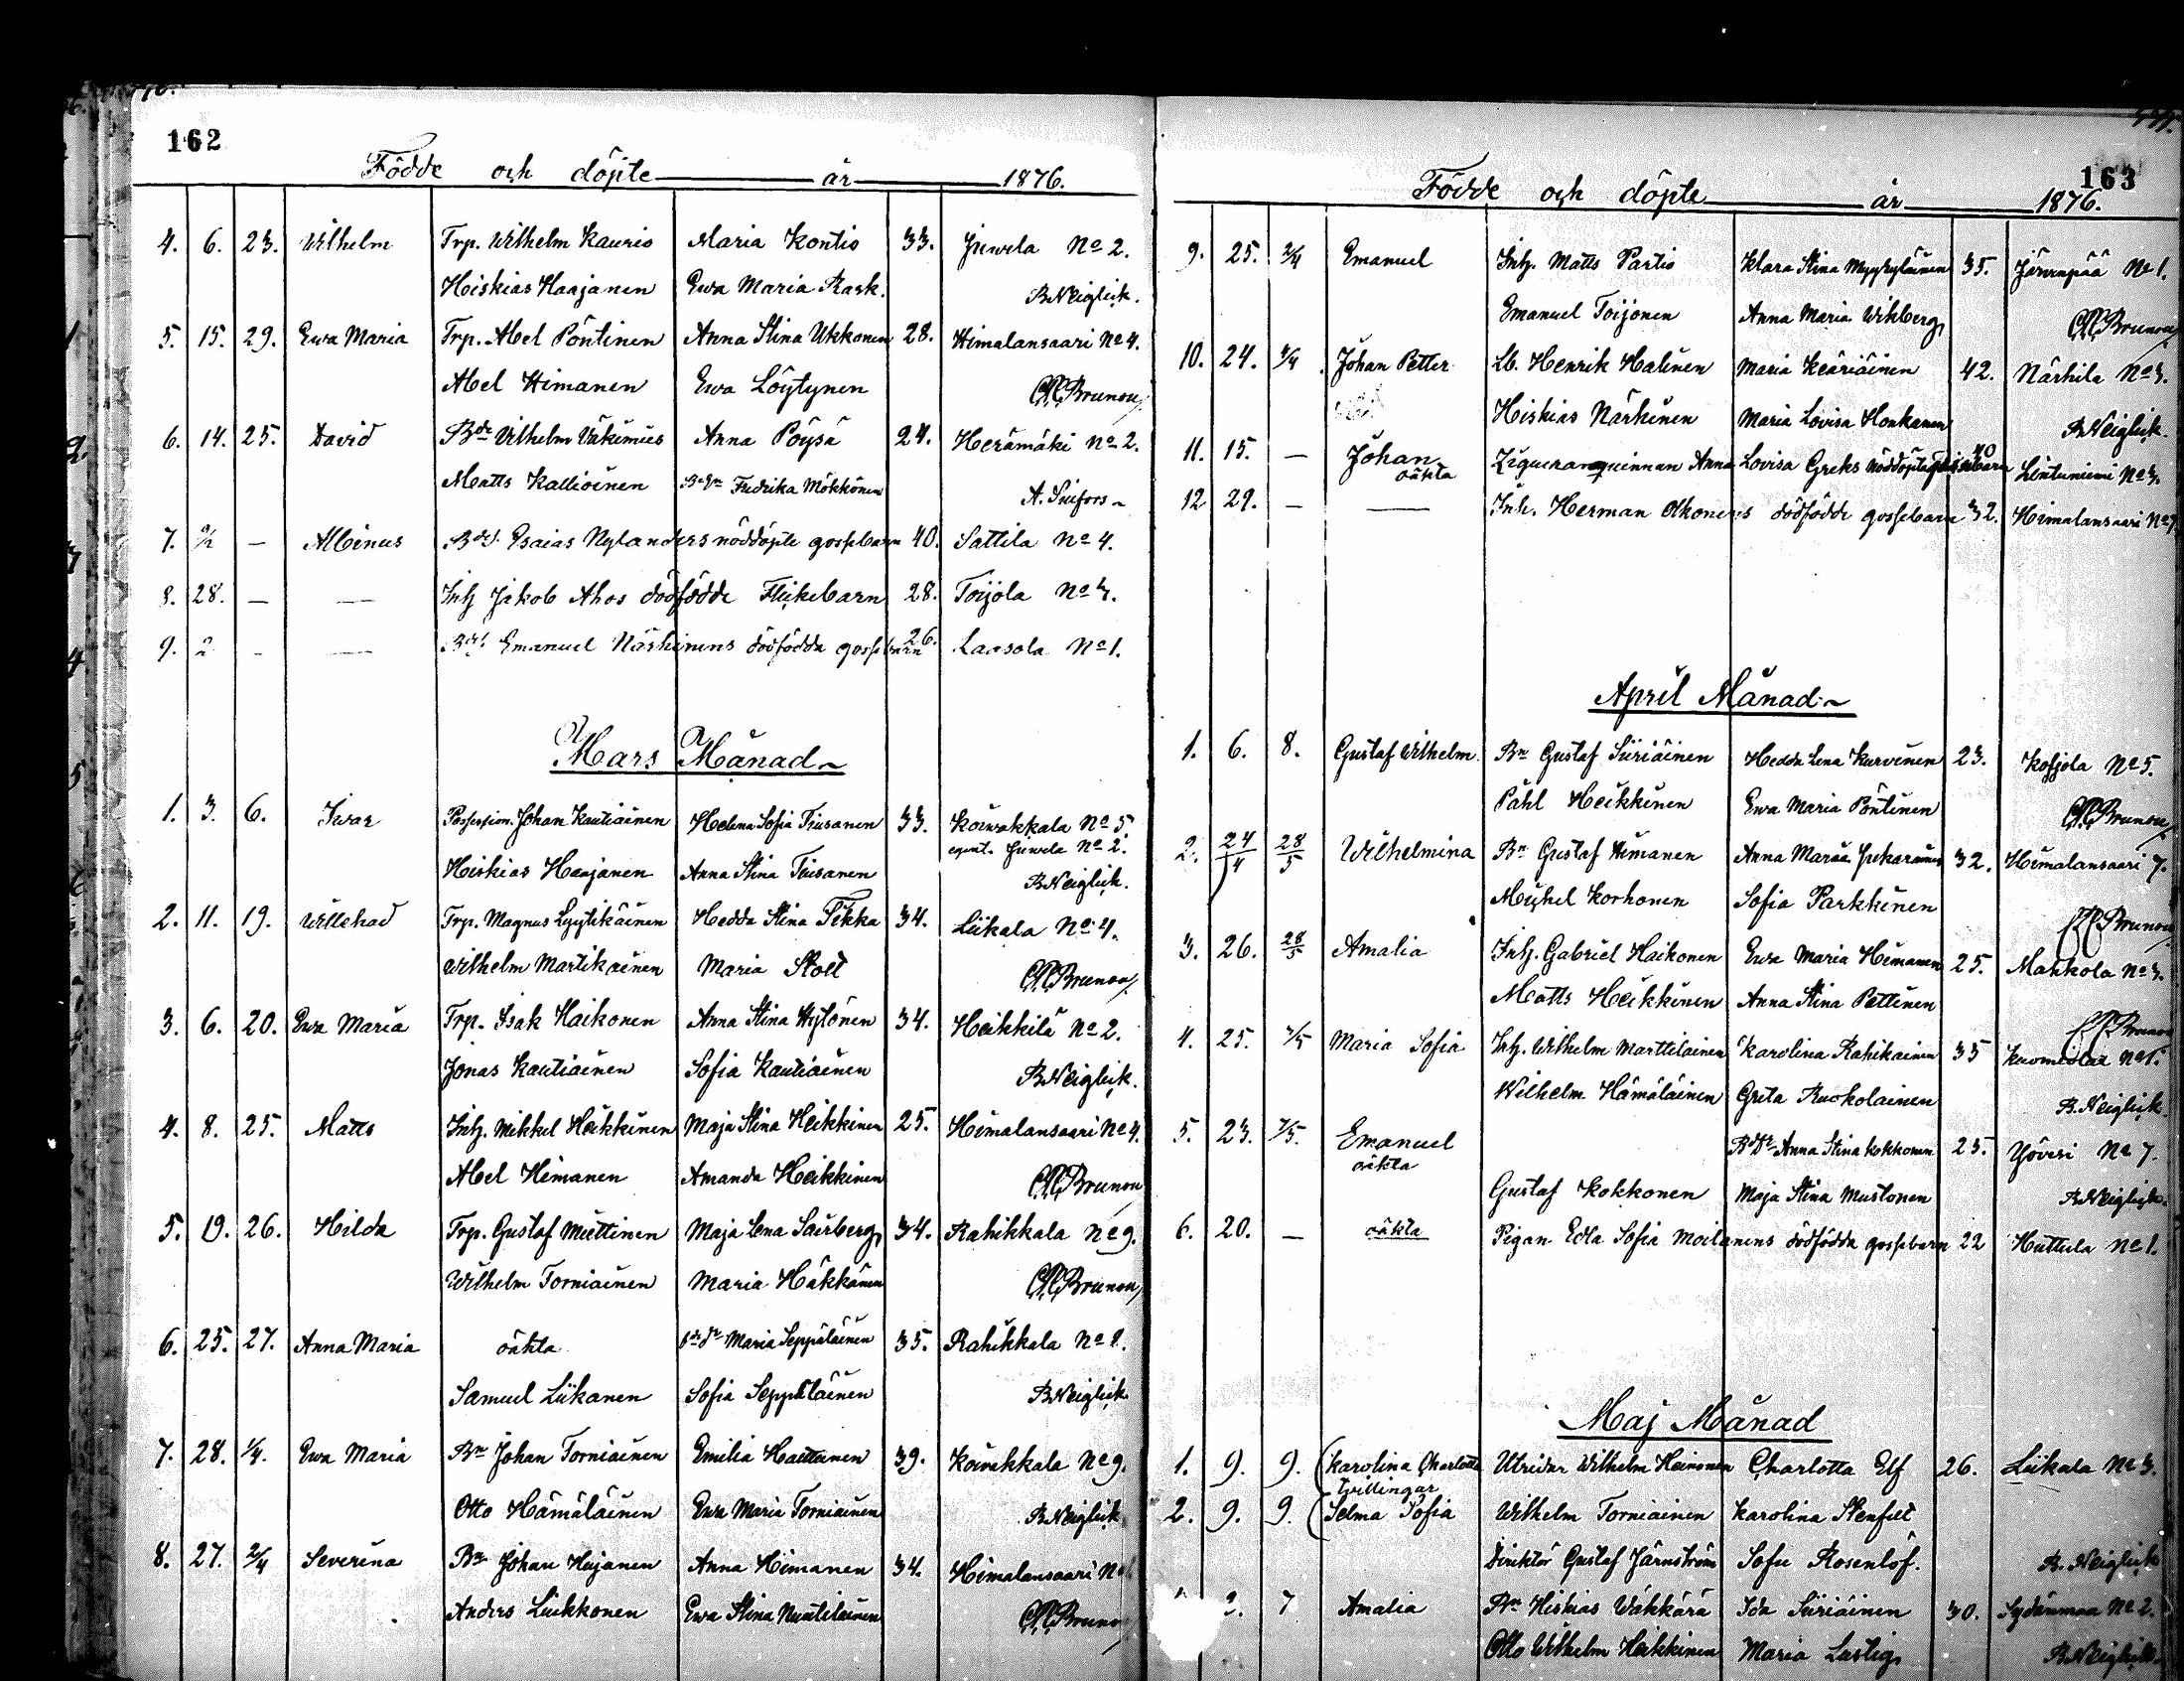 162
Födde och döpte år 1876.
4. 6. 23. Wilhelm Trp. Wilhelm Kaurio Maria Kontio 33. Juvela No 2.
Hiskias Haajanen Ewa Maria Rask. B. Neiglick.
5. 15. 29. Ewa Maria Trp. Abel Pöntinen Anna Stina Ukkonen 28. Himalansaari No 4.
Abel Himanen Ewa Löytynen Brunou
6. 14. 25. David Wilhelm Väkimies Anna Pöysä 24. Herämäki No 2.
Matts Kallioinen Fredrika Mökkönen A.
7. — Albinus Esaias Nylanders nöddöpte gossebarn 40. Sattila No 4.
8. 28. — — Inh. Jakob Ahos dödfödde Flickebarn 28. Toijola No 3.
9. 2 — — Emanuel Närhinens dödfödda gossebarn 26. Laasola No 1.
Mars Månad
1. 3. 6. Ivar Possession. Johan Kautiainen Helena Sofia Tiusanen 33. Koivakkala No 5.
Juvela No 2.
Hiskias Haajanen Anna Stina Tiusanen B. Neiglick.
2. 11. 19. Willehad Trp. Magnus Lyytikäinen Hedda Stina Tikka 34. Liikala No 4.
Wilhelm Martikainen Maria Stolt Brunou
3. 6. 20. Ewa Maria Trp. Isak Haikonen Anna Stina Hytönen 34. Heikkilä No 2.
Jonas Kautiainen Sofia Kautiainen B. Neiglick.
4. 8. 25. Matts Inh. Mikkel Heikkinen Maja Stina Heikkinen 25. Himalansaari No 4.
Abel Himanen Amanda Heikkinen Brunou
5. 19. 26. Hilda Trp. Gustaf Miettinen Maja Lena Sairberg 34. Rahikkala No 9.
Wilhelm Torniainen Maria Häkkänen Brunou
6. 25. 27. Anna Maria oäkta Maria Seppäläinen 35. Rahikkala No 8.
Samuel Liikanen Sofia Seppäläinen B. Neiglick.
7. 28. 1/4. Ewa Maria Bn Johan Torniainen Emilia Haittanen 39. Koivakkala No 9.
Otto Hämäläinen Ewa Maria Torniainen B. Neiglick
8. 27. 2/4 Severina Bn Johan Hajanen Anna Himanen 34. Himalansaari No
Anders Liukkonen Ewa Stina Nuutilainen Brunou
163
Födde och döpte år 1876.
9. 25. 2/4 Emanuel Inh. Matts Partio Klara Stina Myyryläinen 35. Järvenpää No 1.
Emanuel Toijonen Anna Maria Wikberg Brunou
10. 24. Johan Petter Lb. Henrik Halinen Maria Keäriäinen 42. Närhilä No 3.
Hiskias Närhinen Maria Lovisa Honkanen B. Neiglick.
11. 15. — Johan Zigenarqvinnan Anna Lovisa Greks nöddöpte gossebarn 40 Lintuniemi No 3.
oäkta
12 29. — — Inh. Herman Olkonens dödfödde gossebarn 32. Himalansaari No 7
April Månad
1. 6. 8. Gustaf Wilhelm Bn Gustaf Siiriäinen Hedda Lena Kurvinen 23. Kojola No 5.
Påhl Heikkinen Ewa Maria Pöntinen Brunou
2. 24/4 28/5 Wilhelmina Bn Gustaf Himanen Anna Maria 32. Himalansaari 7.
Michel Korhonen Sofia Parkkinen Brunou
3. 26. 28/5 Amalia Inh. Gabriel Haikonen Ewa Maria Himanen 25. Mahkola No 3.
Matts Heikkinen Anna Stina Pettinen Brunou
4. 25. 7/5 Maria Sofia Inh. Wilhelm Marttilainen Karolina Rahikainen 35
Wilhelm Hämäläinen Greta Ruokolainen B. Neiglick.
5. 23. 7/5. Emanuel Anna Stina Kokkonen 25. Yöveri No 7.
oäkta
Gustaf Kokkonen Maja Stina Mustonen B. Neiglick.
6. 20. — oäkta Pigan Edla Sofia Moilanens dödfödda gossebarn 22 Huttula No 1.
Maj Månad
1. 9. 9. Karolina Charlotta Utridar Wilhelm Heinonen Charlotta Elf 26. Liikala No 3.
Tvillingar
2. 9. 9. Selma Sofia Wilhelm Torniainen Karolina Stenfelt
Direktör Gustaf Järnström Sofie Rosenlöf. B. Neiglick
7 Amalia Bn Hiskias Wäkkärä Ida Siiriäinen 30. Sydänmaa No 2.
Otto Wilhelm Heikkinen Maria Lustig B. Neiglick.